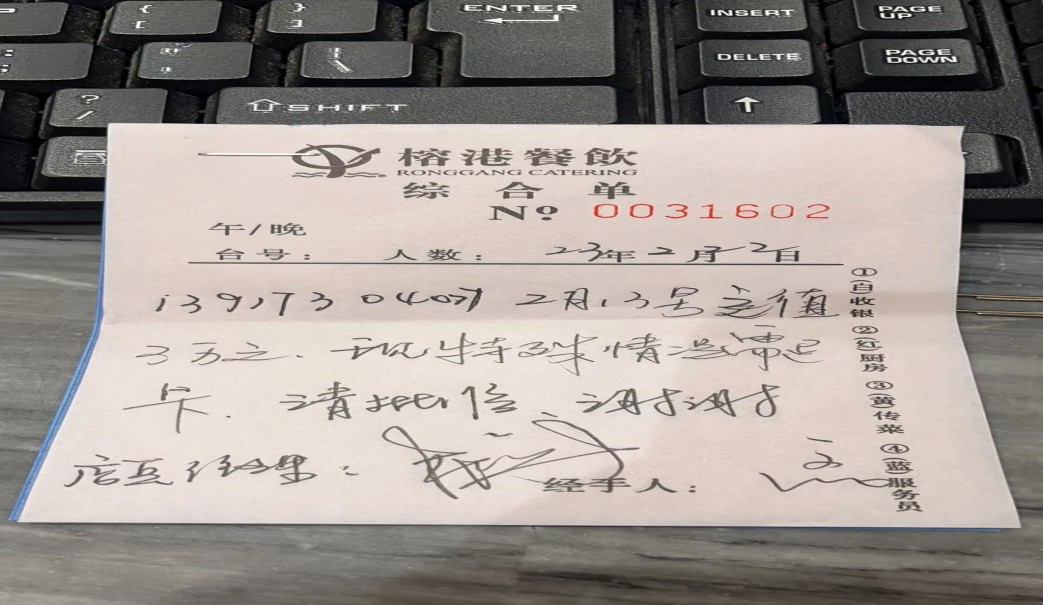 {
[
}
]
ENTER
INSERT
PAGE UP
"
'
|
\
DELETE
PAGE DOWN
?
/
SHIFT
榕港餐飲
RONGGANG CATERING
综合单
Nº 0031602
午/晚
台号： 人数： 23年2月22日
13917304007 2月13号充值
3万元．现特殊情况需退
卡．请批信 谢谢
店直经理：
经手人：
①(白)收银 ②(红)厨房 ③(黄)传菜 ④(蓝)服务员